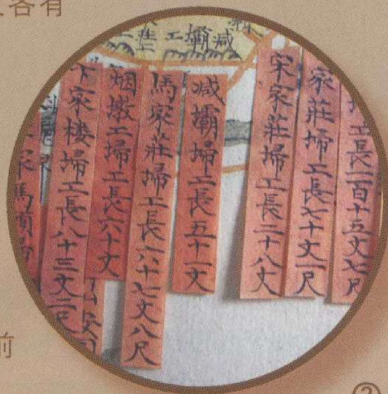 各有
減壩工
工長百十五丈七尺
家莊埽工長七十丈一尺
宋家莊埽工長二十八丈
減壩埽工長五十一丈
馬家莊埽工長六十七丈八尺
烟墩工埽工長六十丈
家樓埽工長八十三丈二尺
前
②